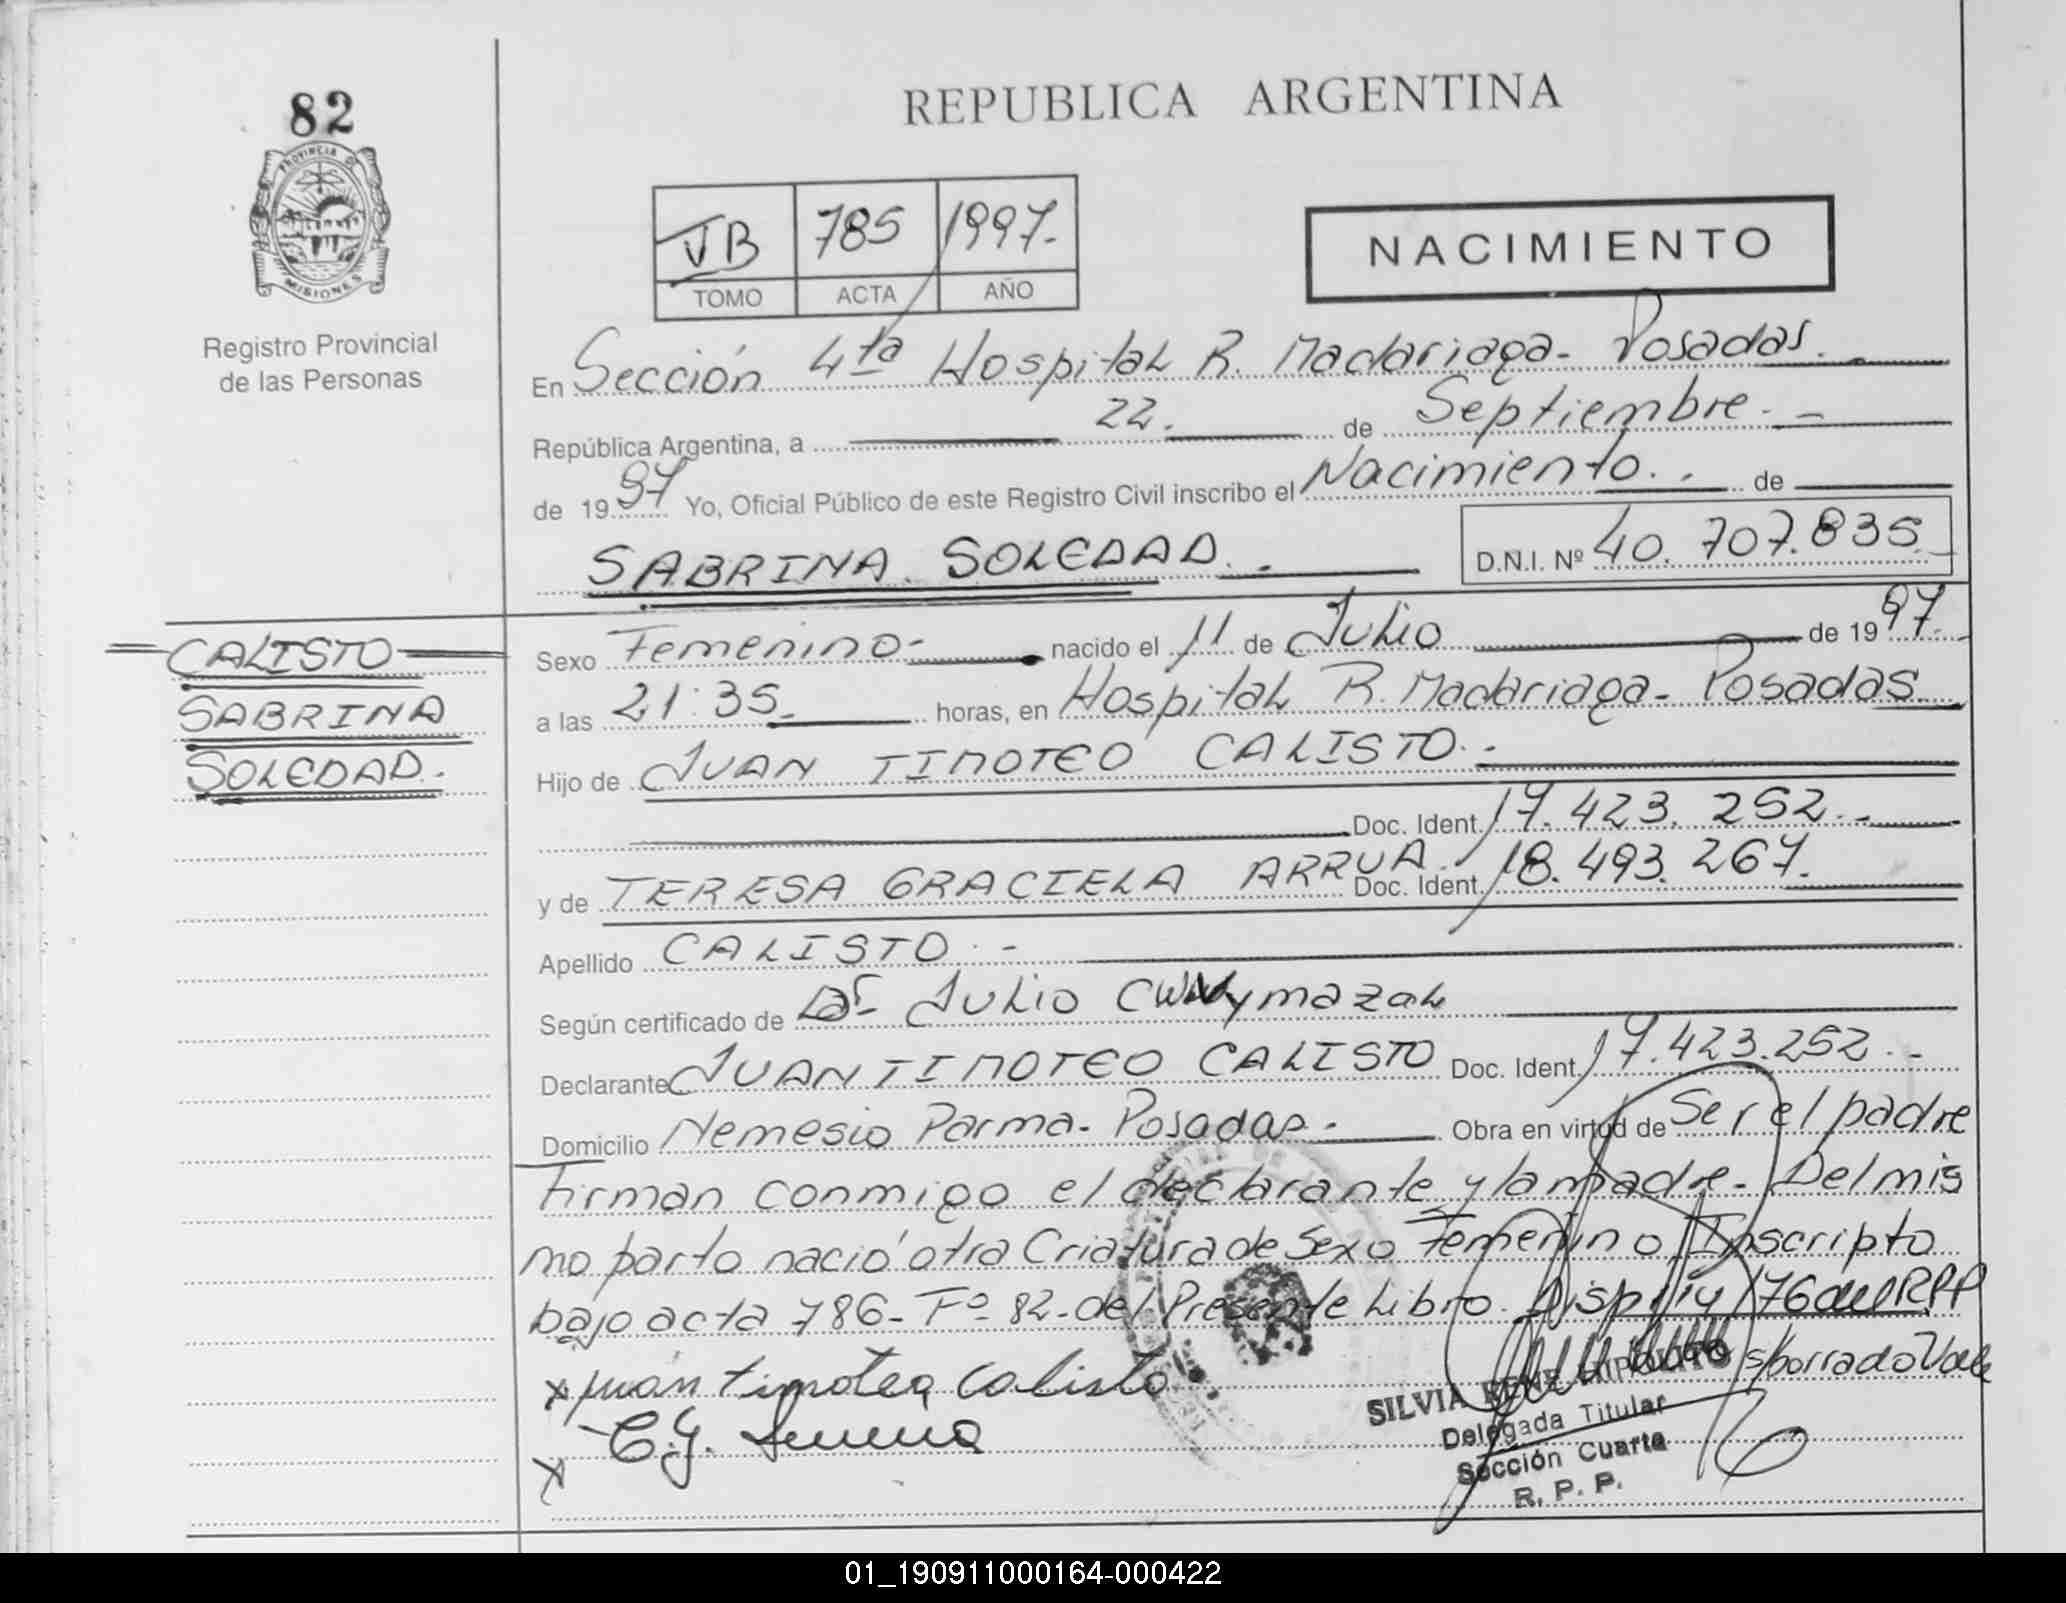 82
PROVINCIA DE
MISIONES
Registro Provincial
de las Personas
REPUBLICA ARGENTINA
VB 785 1997.-
TOMO ACTA AÑO
NACIMIENTO
En Sección 4ta Hospital R. Madariaga- Posadas.-
República Argentina, a 22. de Septiembre.-
de 1997 Yo, Oficial Público de este Registro Civil inscribo el Nacimiento.. de
SABRINA SOLEDAD.- D.N.I. Nº 40.707.835
CALISTO
SABRINA
SOLEDAD.
Sexo Femenino- nacido el 11 de Julio de 1997.
a las 21:35 horas, en Hospital R. Madariaga- Posadas
Hijo de JUAN TIMOTEO CALISTO.-
Doc. Ident. 17.423.252.-
y de TERESA GRACIELA ARRUA. Doc. Ident. 18.493.267.
Apellido CALISTO.-
Según certificado de Dr- Julio
Declarante JUAN TIMOTEO CALISTO Doc. Ident. 17.423.252.-
Domicilio Nemesio Parma- Posadas.- Obra en virtud de Ser el padre
Firman conmigo el declarante y la madre- Del mis
mo parto nació otra Criatura de Sexo Femenino Inscripto
bajo acta 786- Fº 82- del Presente Libro. 176 del RPP
x juan timoteo calisto s/borrado Vale
x
SILVIA RENE HIPOLITO
Delegada Titular
Sección Cuarta
R. P. P.
01_190911000164-000422